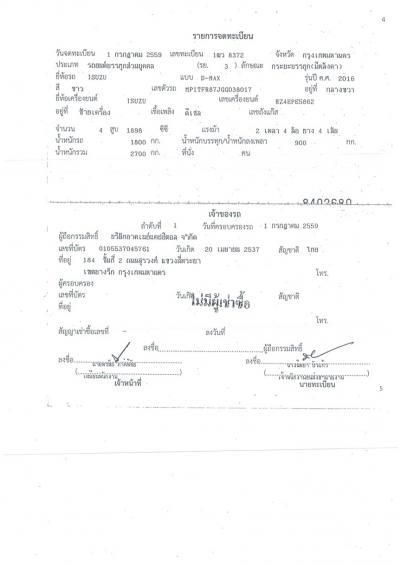 4
รายการจดทะเบียน
วันจดทะเบียน 1 กรกฎาคม 2559 เลขทะเบียน 1ฒว 8372 จังหวัด กรุงเทพมหานคร
ประเภท รถยนต์บรรทุกส่วนบุคคล (รย. 3 ) ลักษณะ กระบะบรรทุก(มีหลังคา)
ยี่ห้อรถ ISUZU แบบ D-MAX รุ่นปี ค.ศ. 2016
สี ขาว เลขตัวรถ MP1TFR87JGG038017 อยู่ที่ กลางขวา
ยี่ห้อเครื่องยนต์ ISUZU เลขเครื่องยนต์ RZ4EPE5862
อยู่ที่ ซ้ายเครื่อง เชื้อเพลิง ดีเซล เลขถังแก๊ส
จำนวน 4 สูบ 1898 ซีซี แรงม้า 2 เพลา 4 ล้อ ยาง 4 เส้น
น้ำหนักรถ 1800 กก. น้ำหนักบรรทุก/น้ำหนักลงเพลา 900 กก.
น้ำหนักรวม 2700 กก. ที่นั่ง คน
8402680
เจ้าของรถ
ลำดับที่ 1 วันที่ครอบครองรถ 1 กรกฎาคม 2559
ผู้ถือกรรมสิทธิ์ จำกัด
เลขที่บัตร 0105537045761 วันเกิด 20 เมษายน 2537 สัญชาติ ไทย
ที่อยู่ 184 ชั้นที่ 2 ถนนสุรวงศ์ แขวงสี่พระยา
เขตบางรัก กรุงเทพมหานคร โทร.
ผู้ครอบครอง
เลขที่บัตร วันเกิด สัญชาติ
ไม่มีผู้เช่าซื้อ
ที่อยู่
โทร.
สัญญาเช่าซื้อเลขที่ - ลงวันที่
ลงชื่อ ผู้ถือกรรมสิทธิ์
ลงชื่อ ลงชื่อ
เจ้าหน้าที่ นายทะเบียน
5